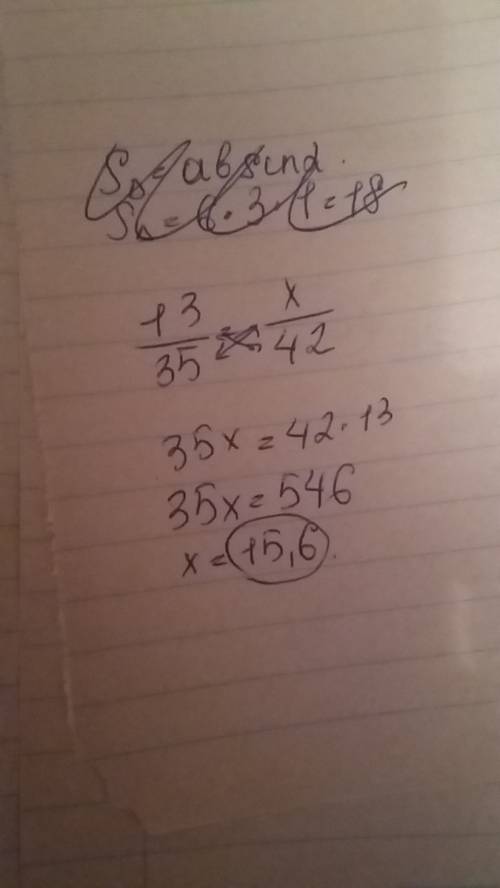 S△ = ab sin α.
S△ = 6 · 3 · 1 = 18
13/35 = x/42
35x = 42 · 13
35x = 546
x = 15,6.